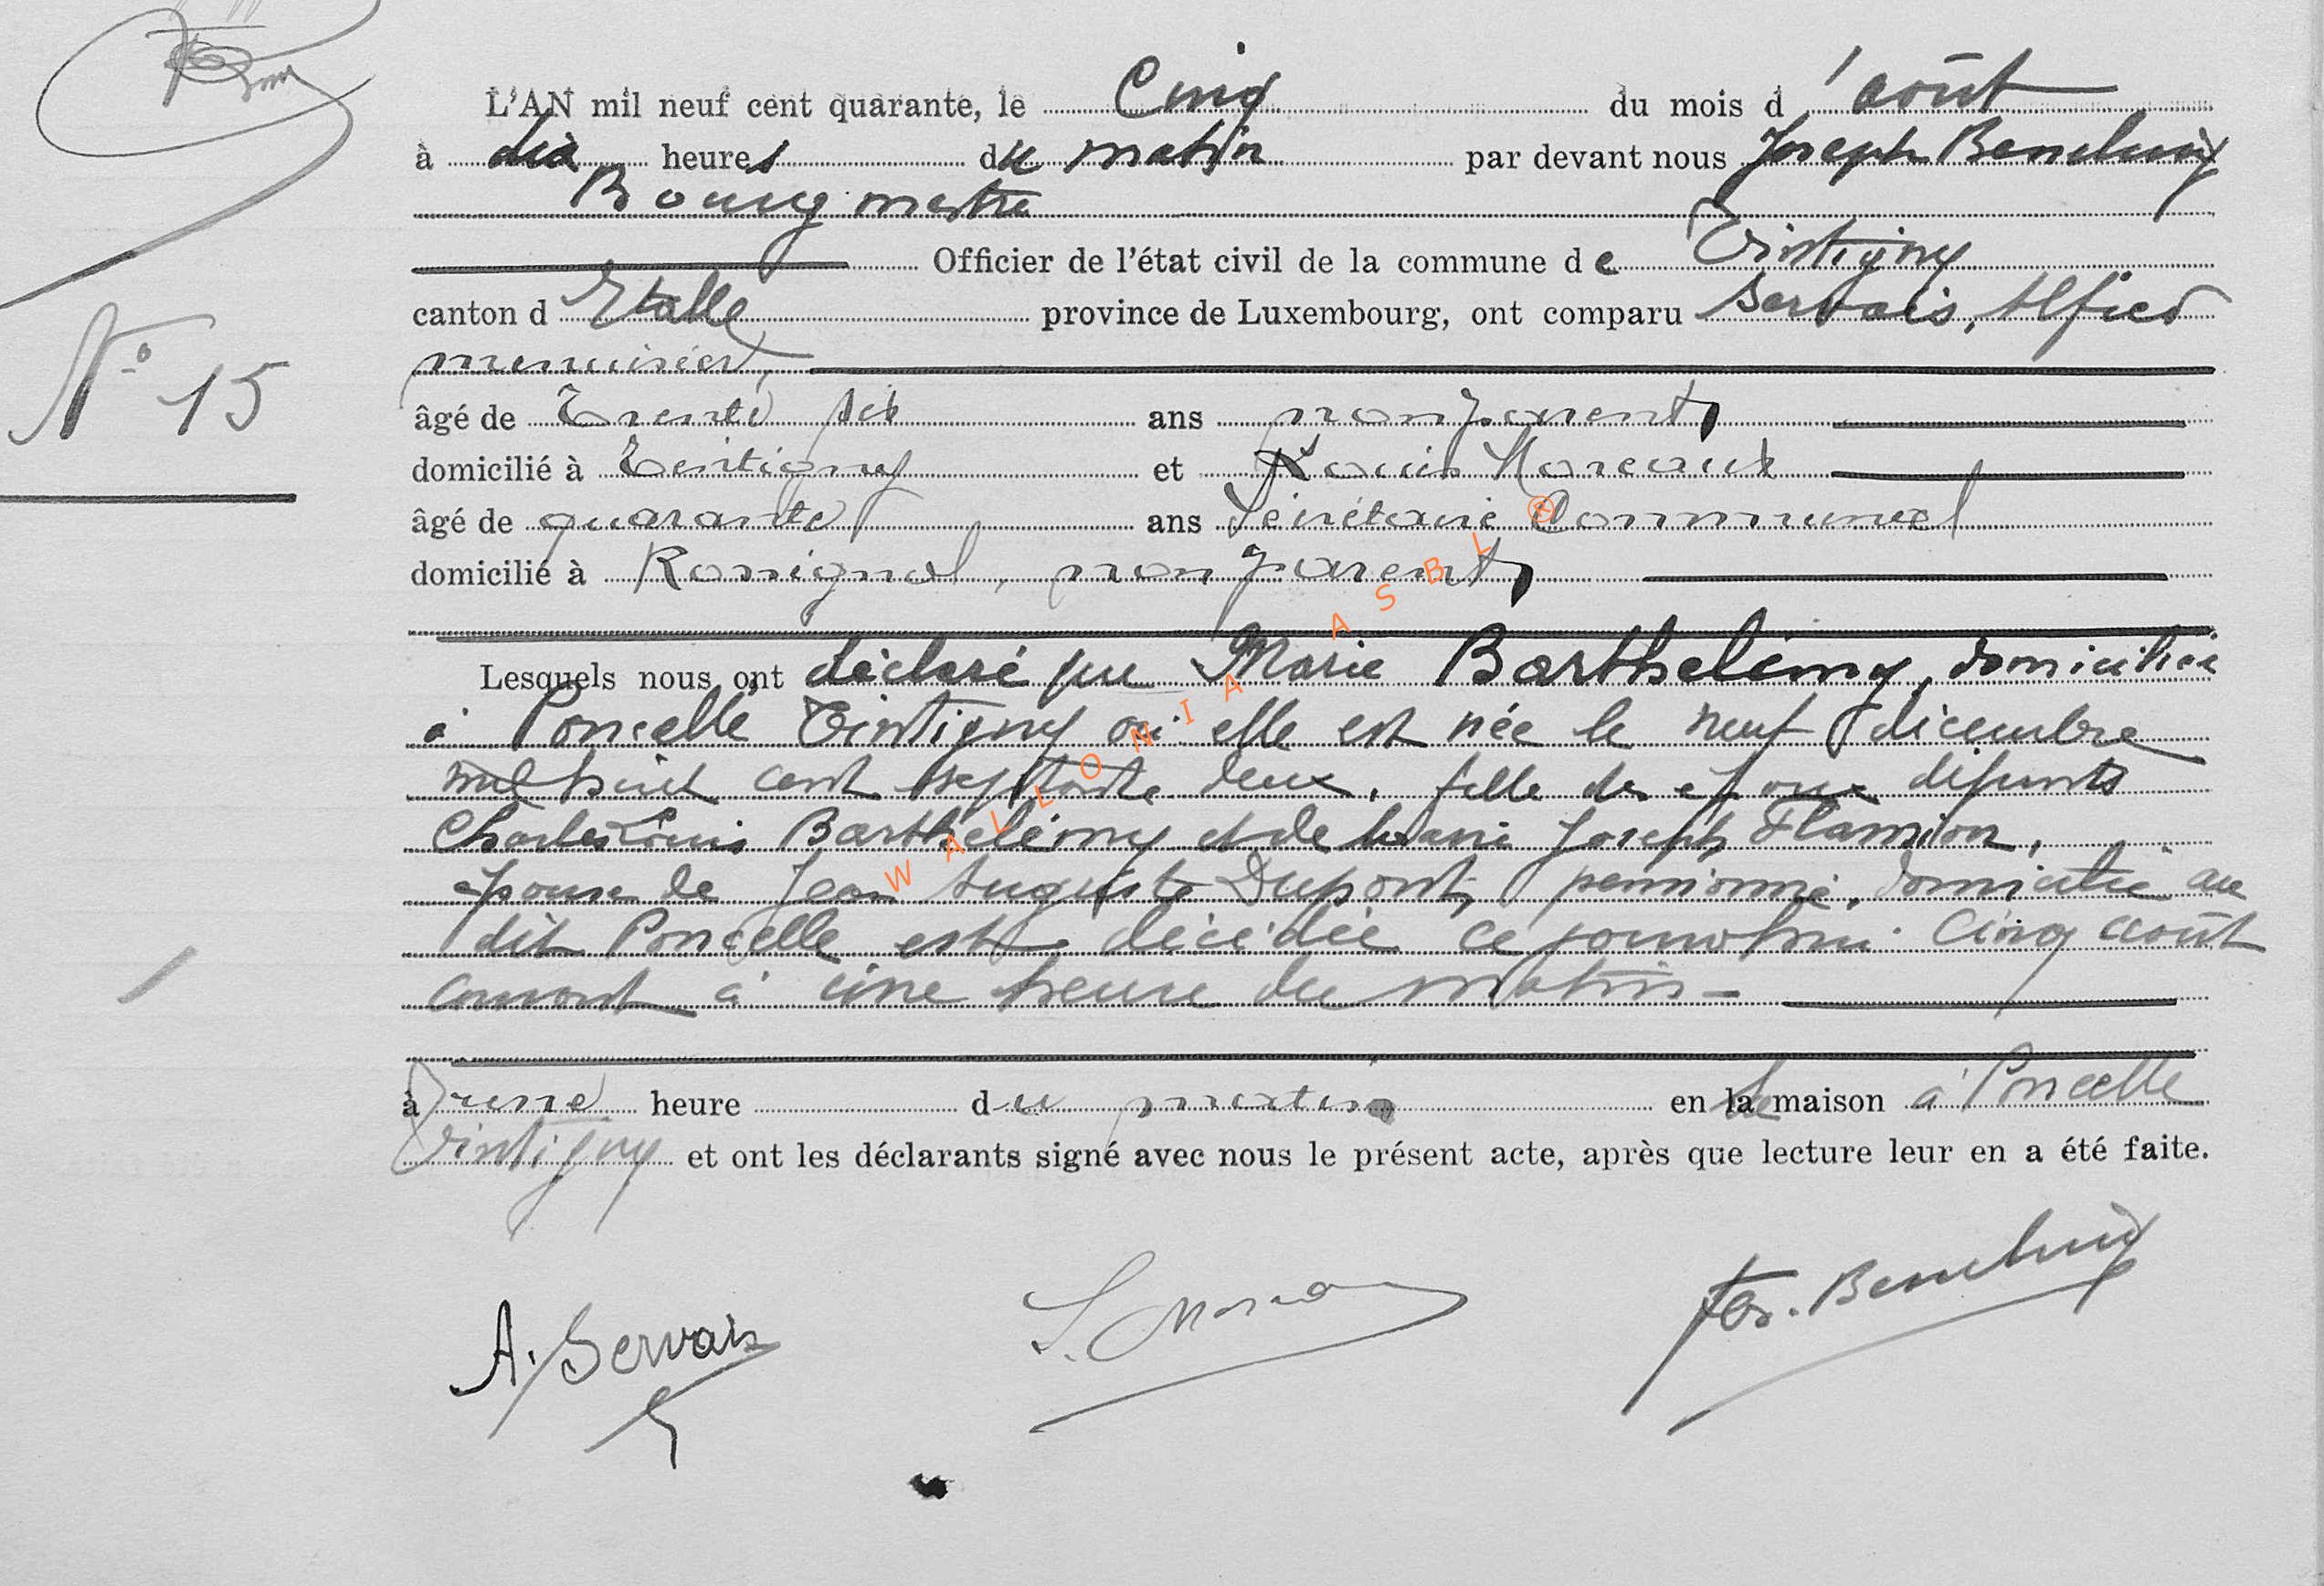 L'AN mil neuf cent quarante, le Cinq du mois d'août
à dix heures du matin par devant nous Joseph
Bourgmestre
Officier de l'état civil de la commune de Tintigny
canton d Etalle province de Luxembourg, ont comparu Servais, Alfred
menuisier,
N° 15
âgé de Trente six ans non parent,
domicilié à Tintigny et Louis Moreaux
âgé de quarante ans Secrétaire Communal
domicilié à Rossignol, non parent,
Lesquels nous ont déclaré que Marie Barthelémy, domiciliée
à Poncelle Tintigny où elle est née le neuf décembre
mil huit cent septante deux, fille des époux défunts
Charles Louis Barthelémy et de Marie Joseph Flamion,
épouse de Jean Auguste Dupont, pensionné, domicilié au
dit Poncelle est décédée ce jourd'hui cinq août
courant à une heure du matin -
à une heure du matin en sa maison à Poncelle
Tintigny et ont les déclarants signé avec nous le présent acte, après que lecture leur en a été faite.
A. Servais
WALLONIA ASBL ®